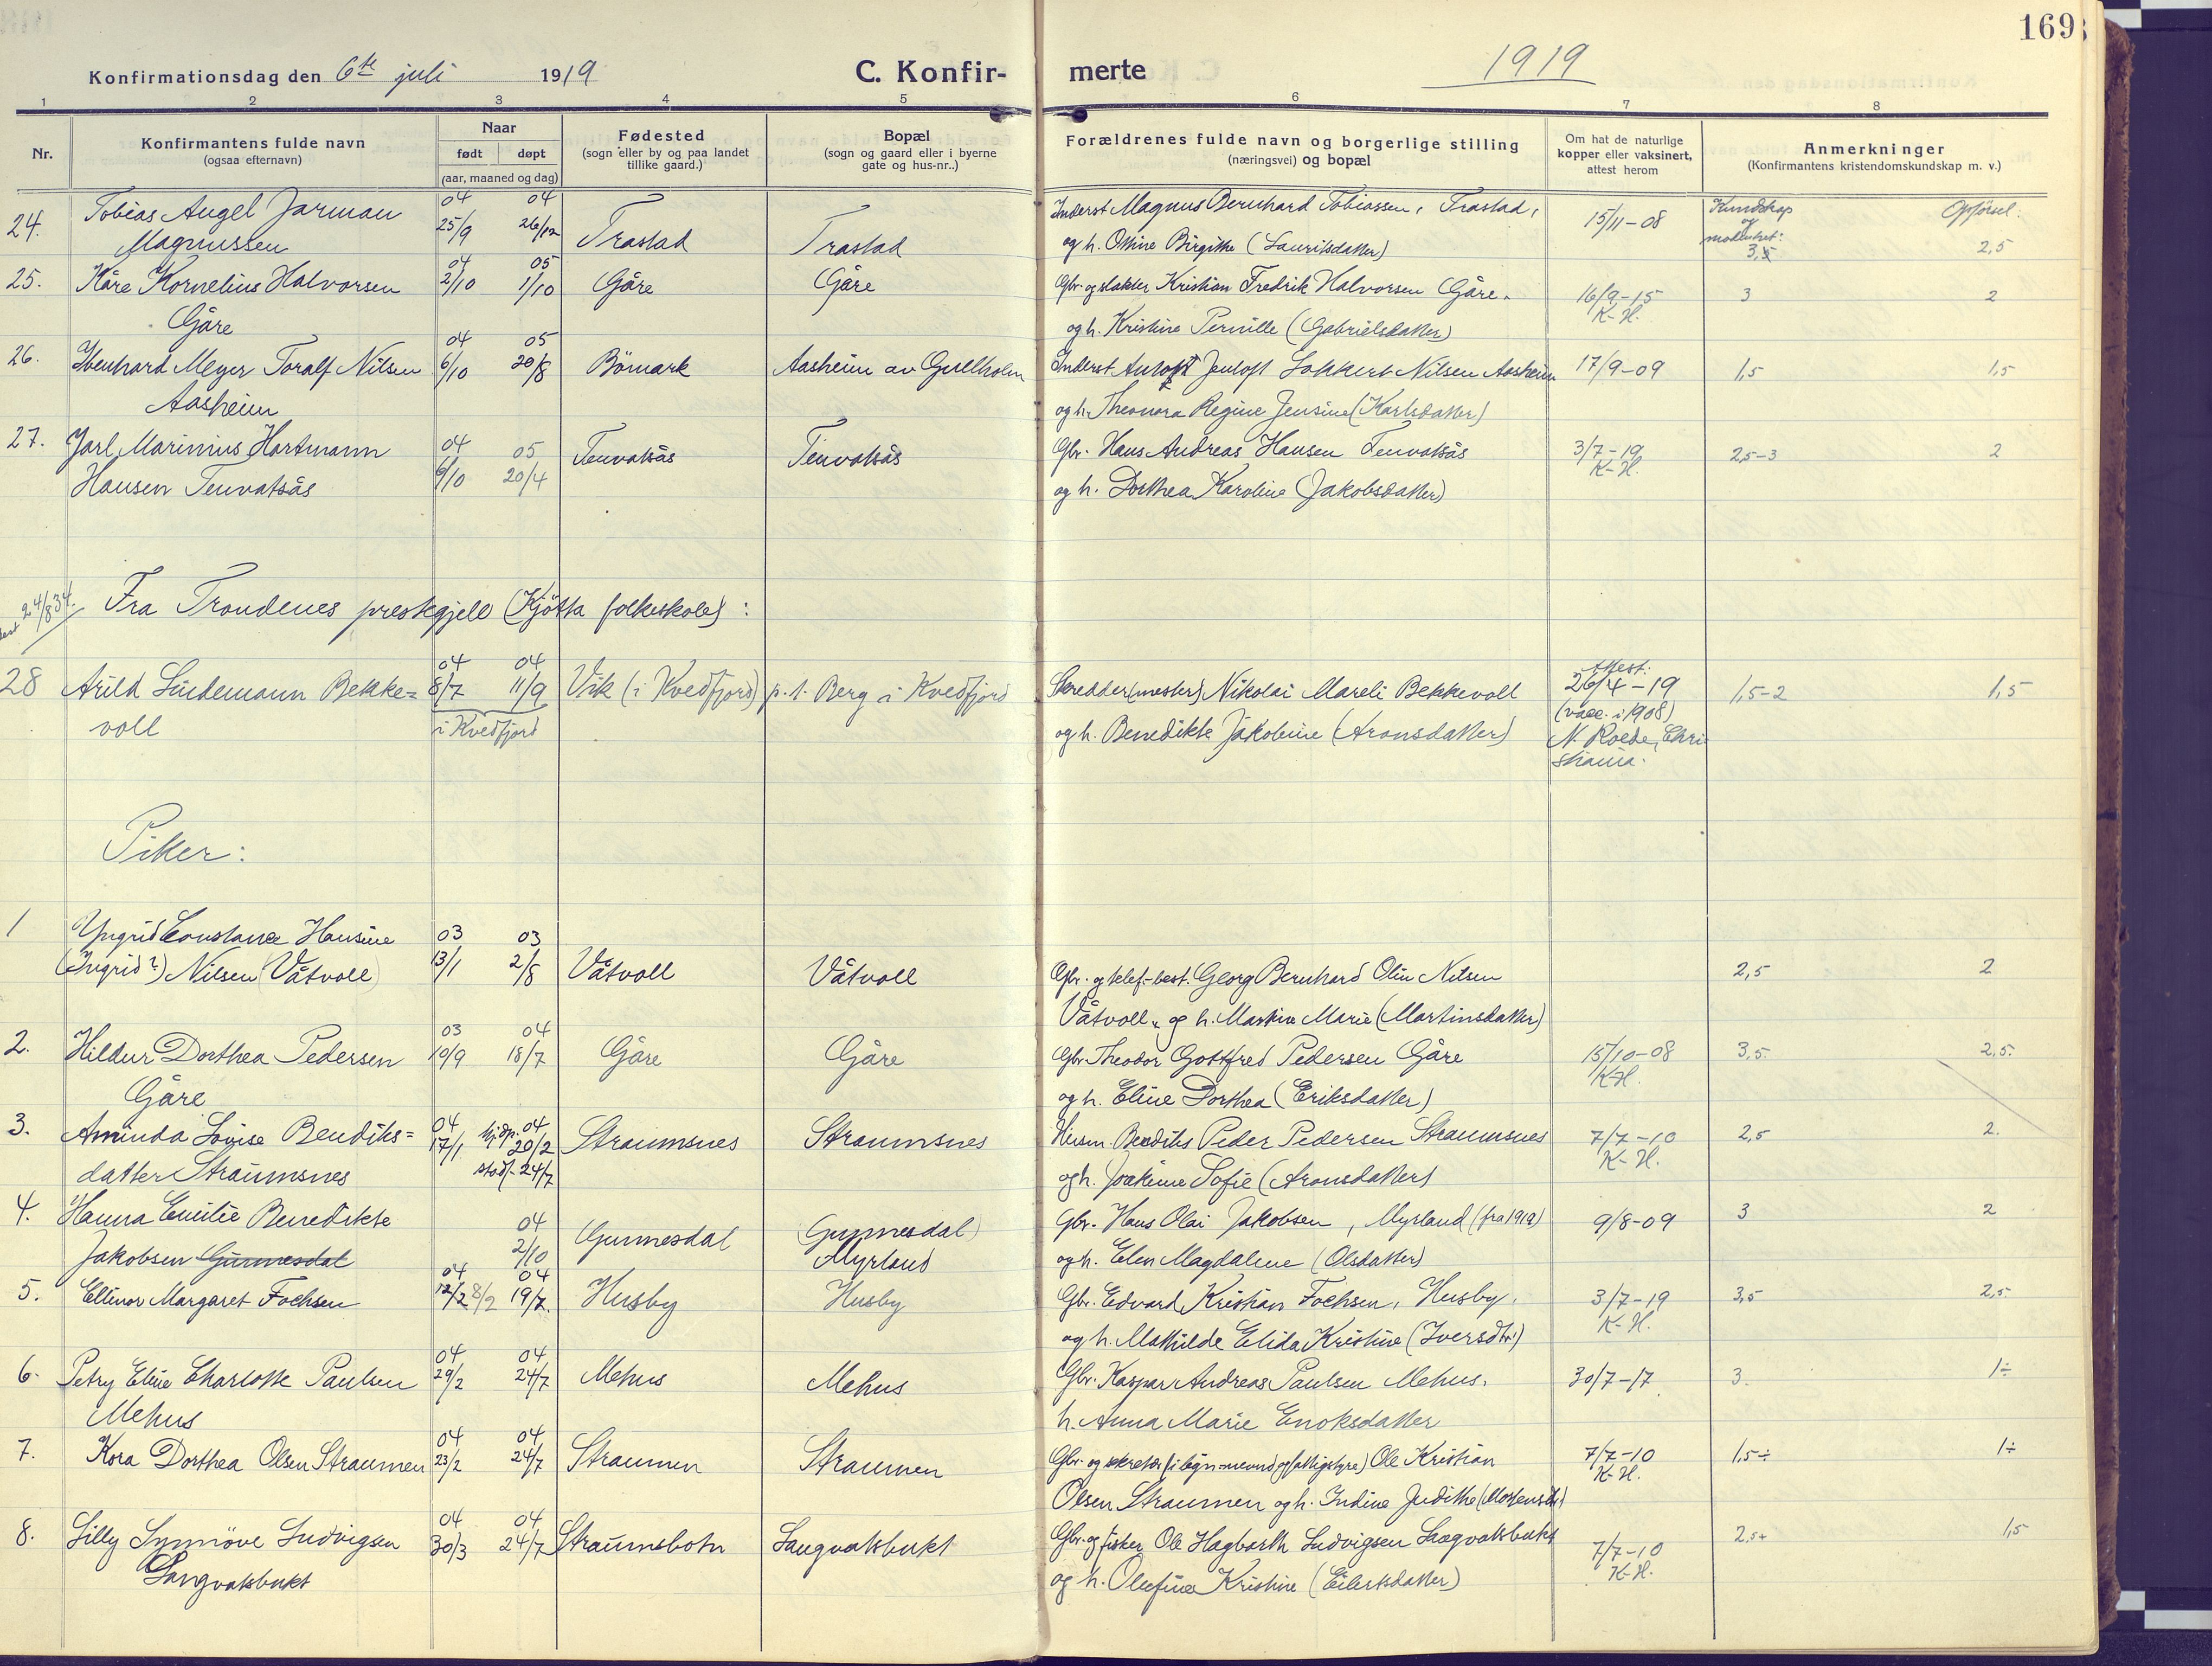 169
Konfirmationsdag den 6te juli 1919
C. Konfirmerte
1919
1 2 3 4 5 6 7 8
Nr.
Konfirmantens fulde navn
(ogsaa efternavn)
Naar
født døpt
(aar, maaned og dag)
Fødested
(sogn eller by og paa landet
tillike gaard.)
Bopæl
(sogn og gaard eller i byerne
gate og hus-nr..)
Forældrenes fulde navn og borgerlige stilling
(næringsvei) og bopæl
Om hat de naturlige
kopper eller vaksinert,
attest herom
Anmerkninger
(Konfirmantens kristendomskundskap m. v.)
Kundskap og modenhet: Opførsel:
24. Tobias Angel Jarman 04 25/9 04 26/12 Trastad Trastad Inderst Magnus Bernhard Tobiassen, Trastad, 15/11-08 3,5 2,5
Magnussen og h. Othine Birgithe (Lauritsdatter)
25. Kåre Kornelius Halvorsen 04 2/10 05 1/10 Gåre Gåre Gbr. og slakter Kristian Fredrik Halvorsen Gåre. 16/9-15 K-H. 3 2
Gåre og h. Kristine Pernille (Gabrielsdatter)
26. Meyer Toralf Nilsen 04 6/10 05 20/8 Börnark Aasheim av Gullholm Inderst Jentoft Nilsen Aasheim 17/9-09 1,5 1,5
Aasheim og h. Theonora Regine Jensine (Karlsdatter)
27. Jarl Marinius Hartmann 04 6/10 05 20/4 Tennvatsås Tennvatsås Gbr. Hans Andreas Hansen Tennvatsås 3/7-19 K-H. 2,5-3 2
Hansen Tennvatsås og h. Dorthea Karoline (Jakobsdatter)
24/8 34.
Fra Trondenes prestegjeld (Kjøtta folkeskole):
28 Arild Lindemann Bekke= 04 8/7 04 11/9 Vik (i Kvedfjord) p. t. Berg i Kvedfjord Skredder(mester) Nikolai Mareli Bekkevoll Attest: 26/4-19 1,5-2 1,5
voll i Kvedfjord og h. Benedikte Jakobine (Aronsdatter) (vacc. i 1908)
N. Roede, Chri
stiania.
Piker:
1 Yngrid Constance Hansine 03 13/1 03 2/8 Våtvoll Våtvoll Gbr. og telef.-best. Georg Bernhard Olin Nilsen 2,5 2
(Ingrid?) Nilsen (Våtvoll) Våtvoll, og h. Martine Marie (Martinsdatter)
2. Hildur Dorthea Pedersen 03 10/9 04 18/7 Gåre Gåre Gbr. Theodor Gottfred Pedersen Gåre 15/10-08 K-H. 3,5. 2,5.
Gåre og h. Eline Dorthea (Eriksdatter)
3. Aminda Lovise Bendiks= 04 17/1 hj.dp. 04 20/2 Straumsnes Straumsnes Husm. Bendiks Peder Pedersen Straumsnes 7/7-10 K-H. 2,5 2.
datter Straumsnes stadf. 24/7 og h. Joakime Sofie (Aronsdatter)
4. Hanna Emilie Benedikte 04 2/10 Gunnesdal (Gunnesdal) Gbr. Hans Olai Jakobsen, Myrland (fra 1912) 9/8-09 3 2
Jakobsen Gunnesdal Myrland og h. Elen Magdalene (Olsdatter)
5. Ellinor Margaret Fochsen 04 12/2 8/2 04 19/7. Husby Husby Gbr. Edvard Kristian Fochsen, Husby. 3/7-19 K-H. 3,5 2,5.
og h. Mathilde Elida Kristine (Iversdtr.)
6. Petry Eline Charlotte Paulsen 04 29/2 04 24/7 Mehus Mehus Gbr. Kaspar Andreas Paulsen Mehus. 30/7-17 3. 1÷
Mehus h. Anna Marie Enoksdatter
7. Kora Dorthea Olsen Straumen 04 23/2 04 24/7 Straumen Straumen Gbr. og sekretær (i lign.-nevnd og fattigstyre) Ole Kristian 7/7-10 K-H. 1,5÷ 1÷
Olsen Straumen og h. Indine Judithe (Mortensdtr)
8. Lilly Synnöve Ludvigsen 04 30/3 04 24/7 Straumsbotn Langvatsbukt Gbr. og fisker Ole Hagbarth Ludvigsen Langvatsbukt 7/7-10 K-H. 2,5+ 1,5
Langvatsbukt og h. Olufine Kristine (Eilertsdatter)